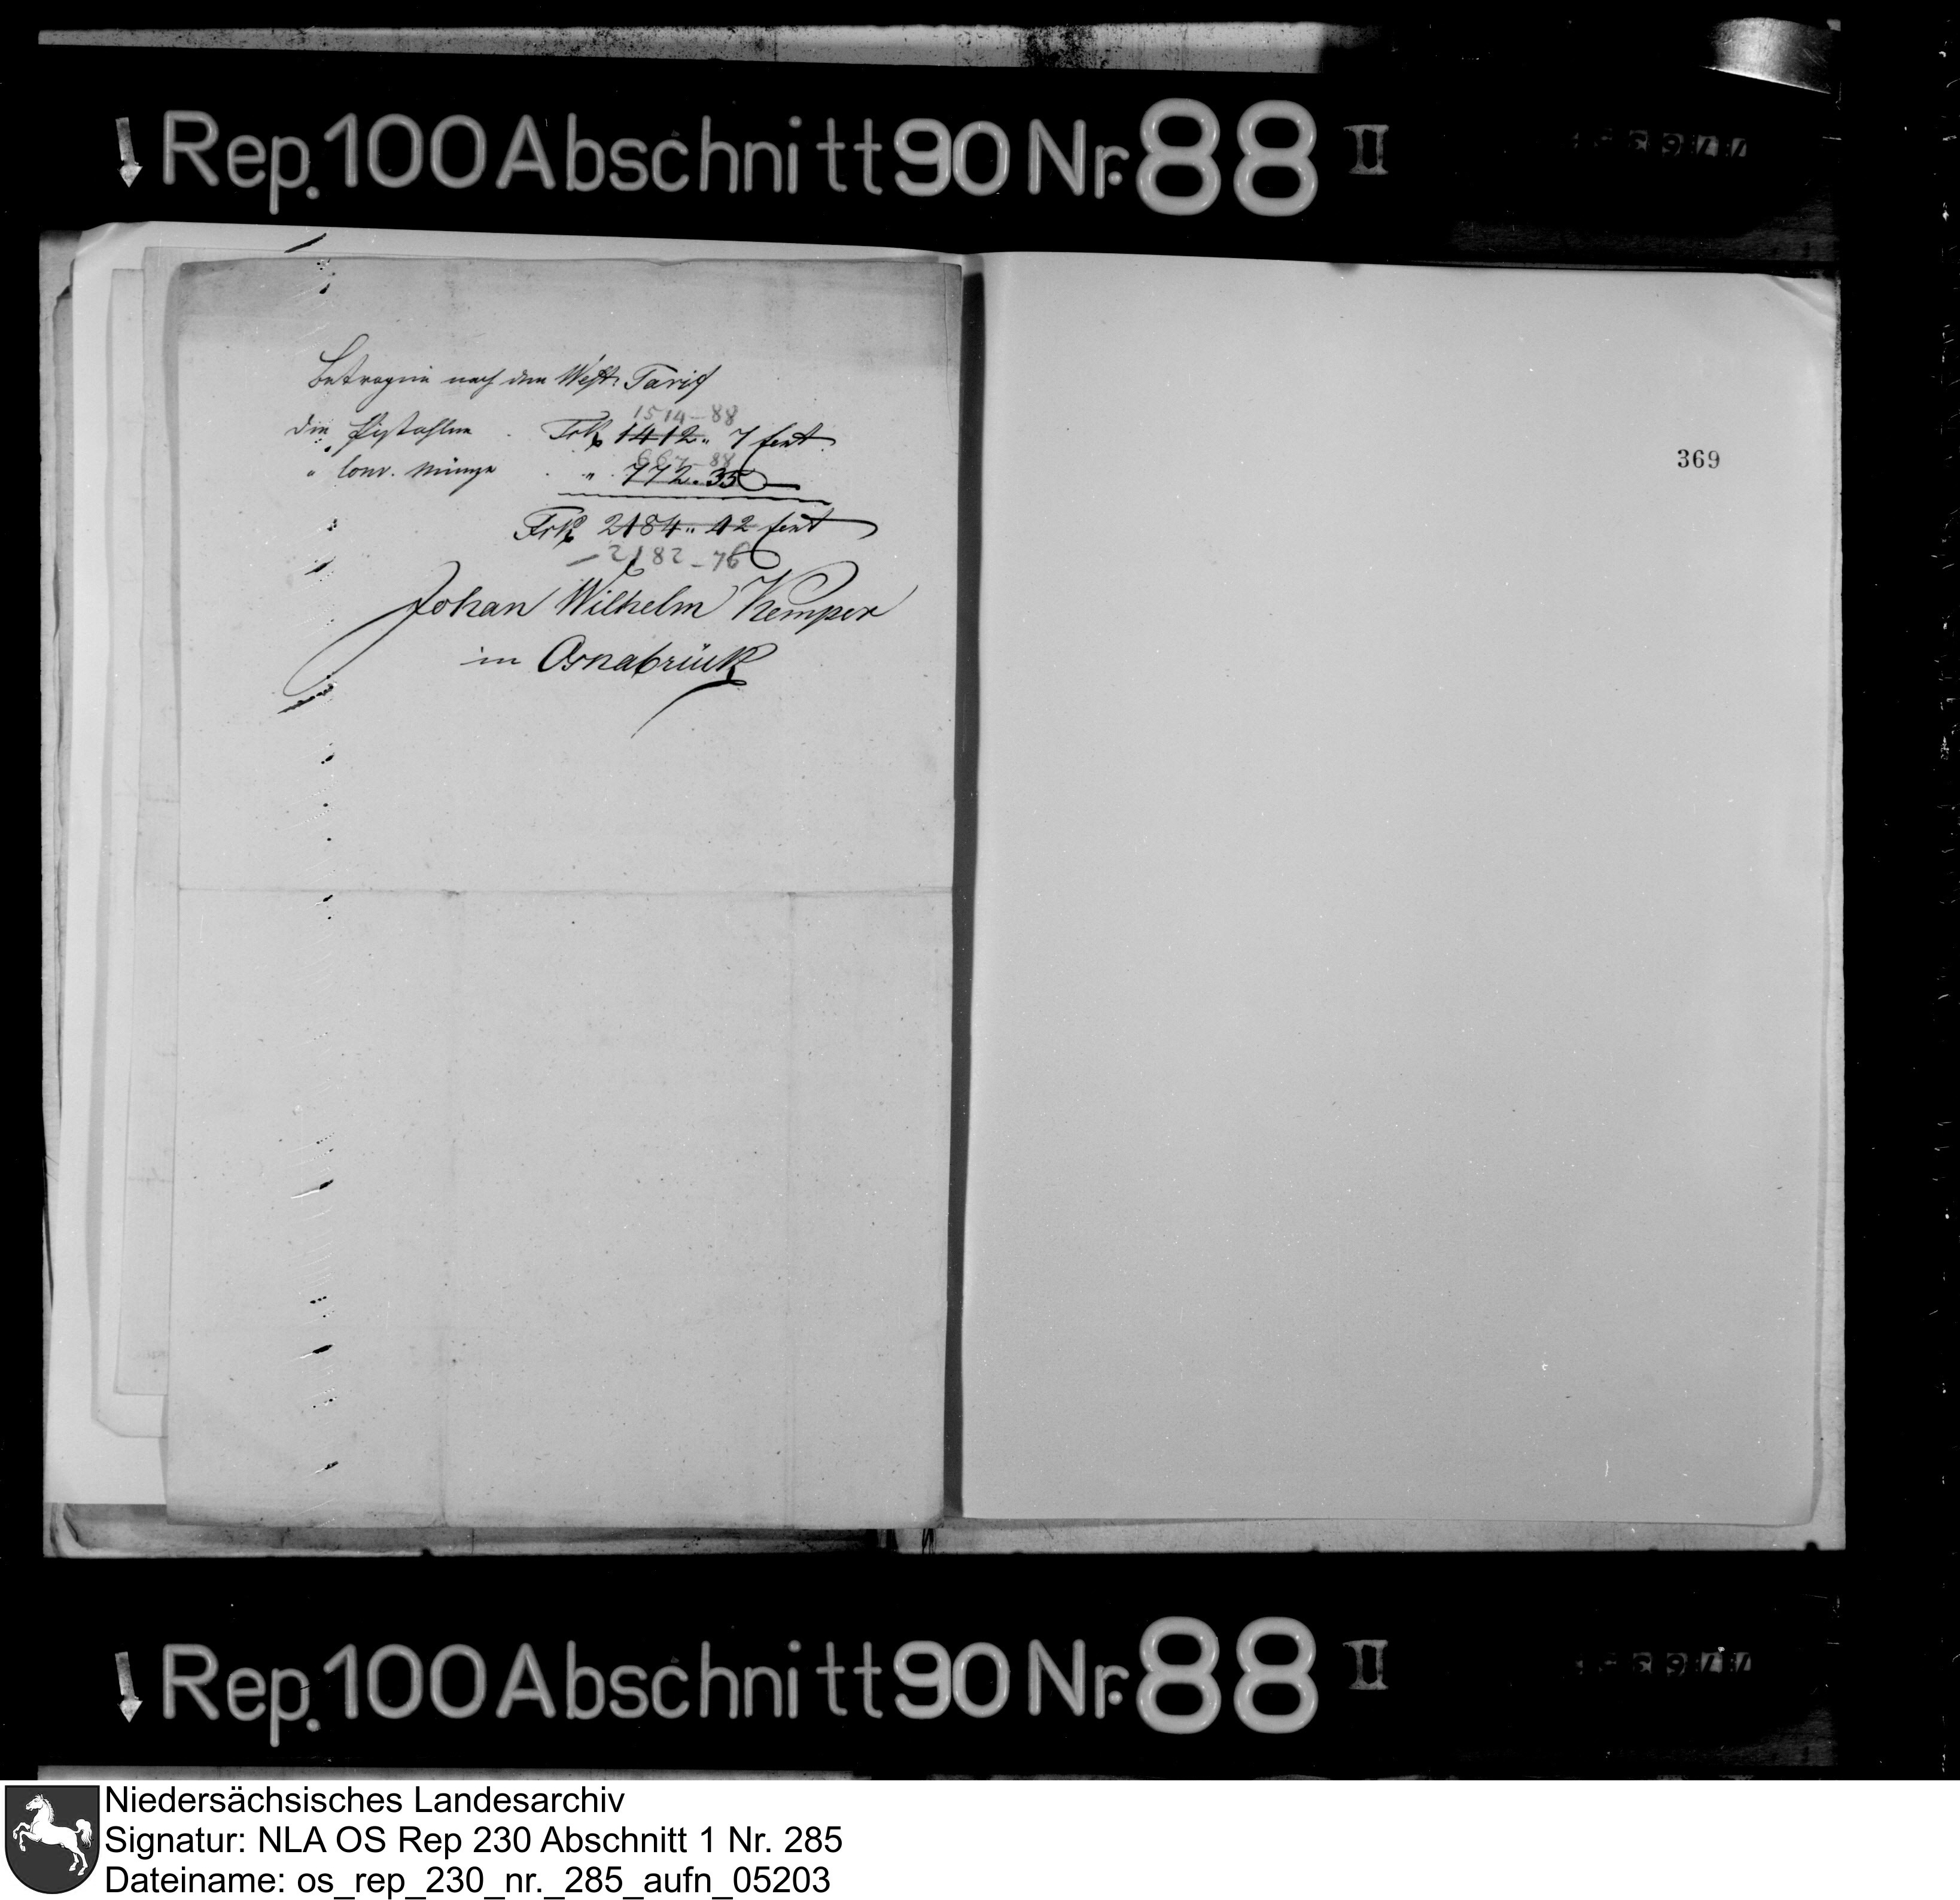 Rep. 100 Abschnitt 90 Nr. 88 II
Betragen nach dem West. Tarif
1514-88
die Pistohlen . Frk 1412 „ 7 Cent
667-88
„ Conv. Münze . „ 772 . 35
Frk 2184 „ 42 Cent
2182-76
Johan Wilhelm Kemper
in Osnabrück
369
Rep. 100 Abschnitt 90 Nr. 88 II
Niedersächsisches Landesarchiv
Signatur: NLA OS Rep 230 Abschnitt 1 Nr. 285
Dateiname: os_rep_230_nr._285_aufn_05203